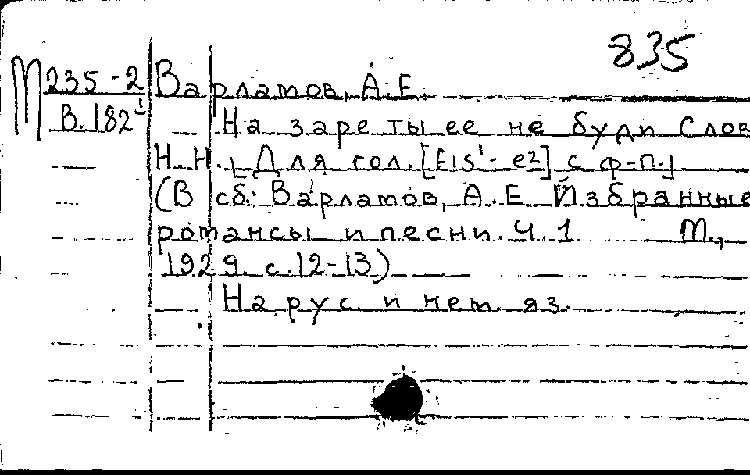 835
М 235-2 Варламов, А.Е.
В.182¹ На заре ты ее не буди Слов
Н.Н., Для гол. [Eis¹-e2] с ф-п.
(В сб: Варламов, А.Е Избранные
романсы и песни. Ч.1 М.,
1929. с.12-13)
На рус и нем яз.